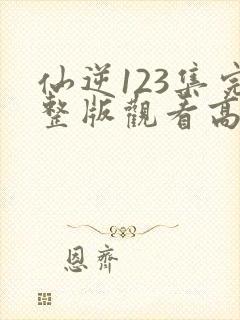 仙逆123集完
整版觀看高
恩齊